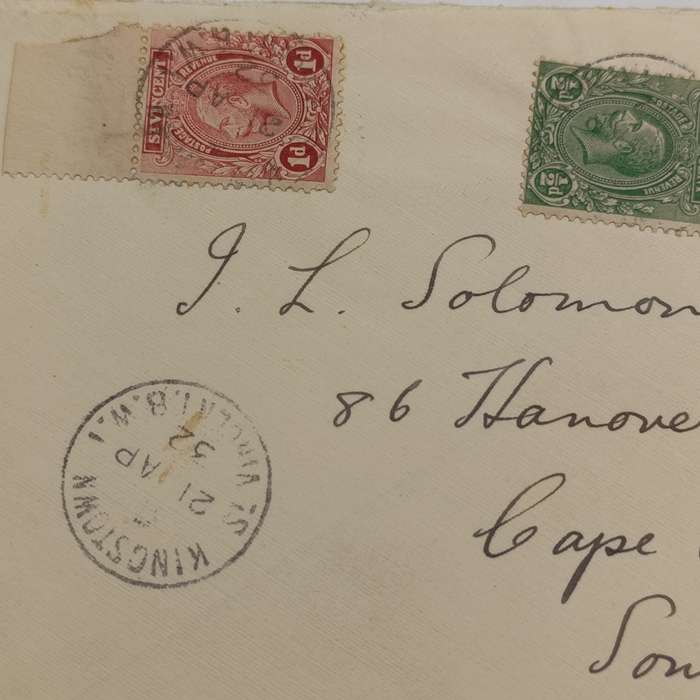 ST VINCENT
POSTAGE & REVENUE
1d
1d
½d
½d
POSTAGE & REVENUE
AP
I. L. Solomon
86 Hanove
Cape
Sou
KINGSTOWN
ST VINCENT. B.W.I
21 AP
32